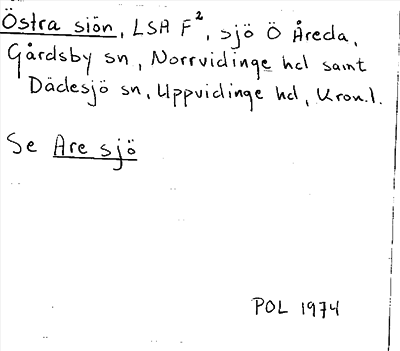 Östra siön, LSA F², sjö Ö Åreda,
Gårdsby sn, Norrvidinge hd samt
Dädesjö sn, Uppvidinge hd, Kron.l.
Se Are sjö
POL 1974